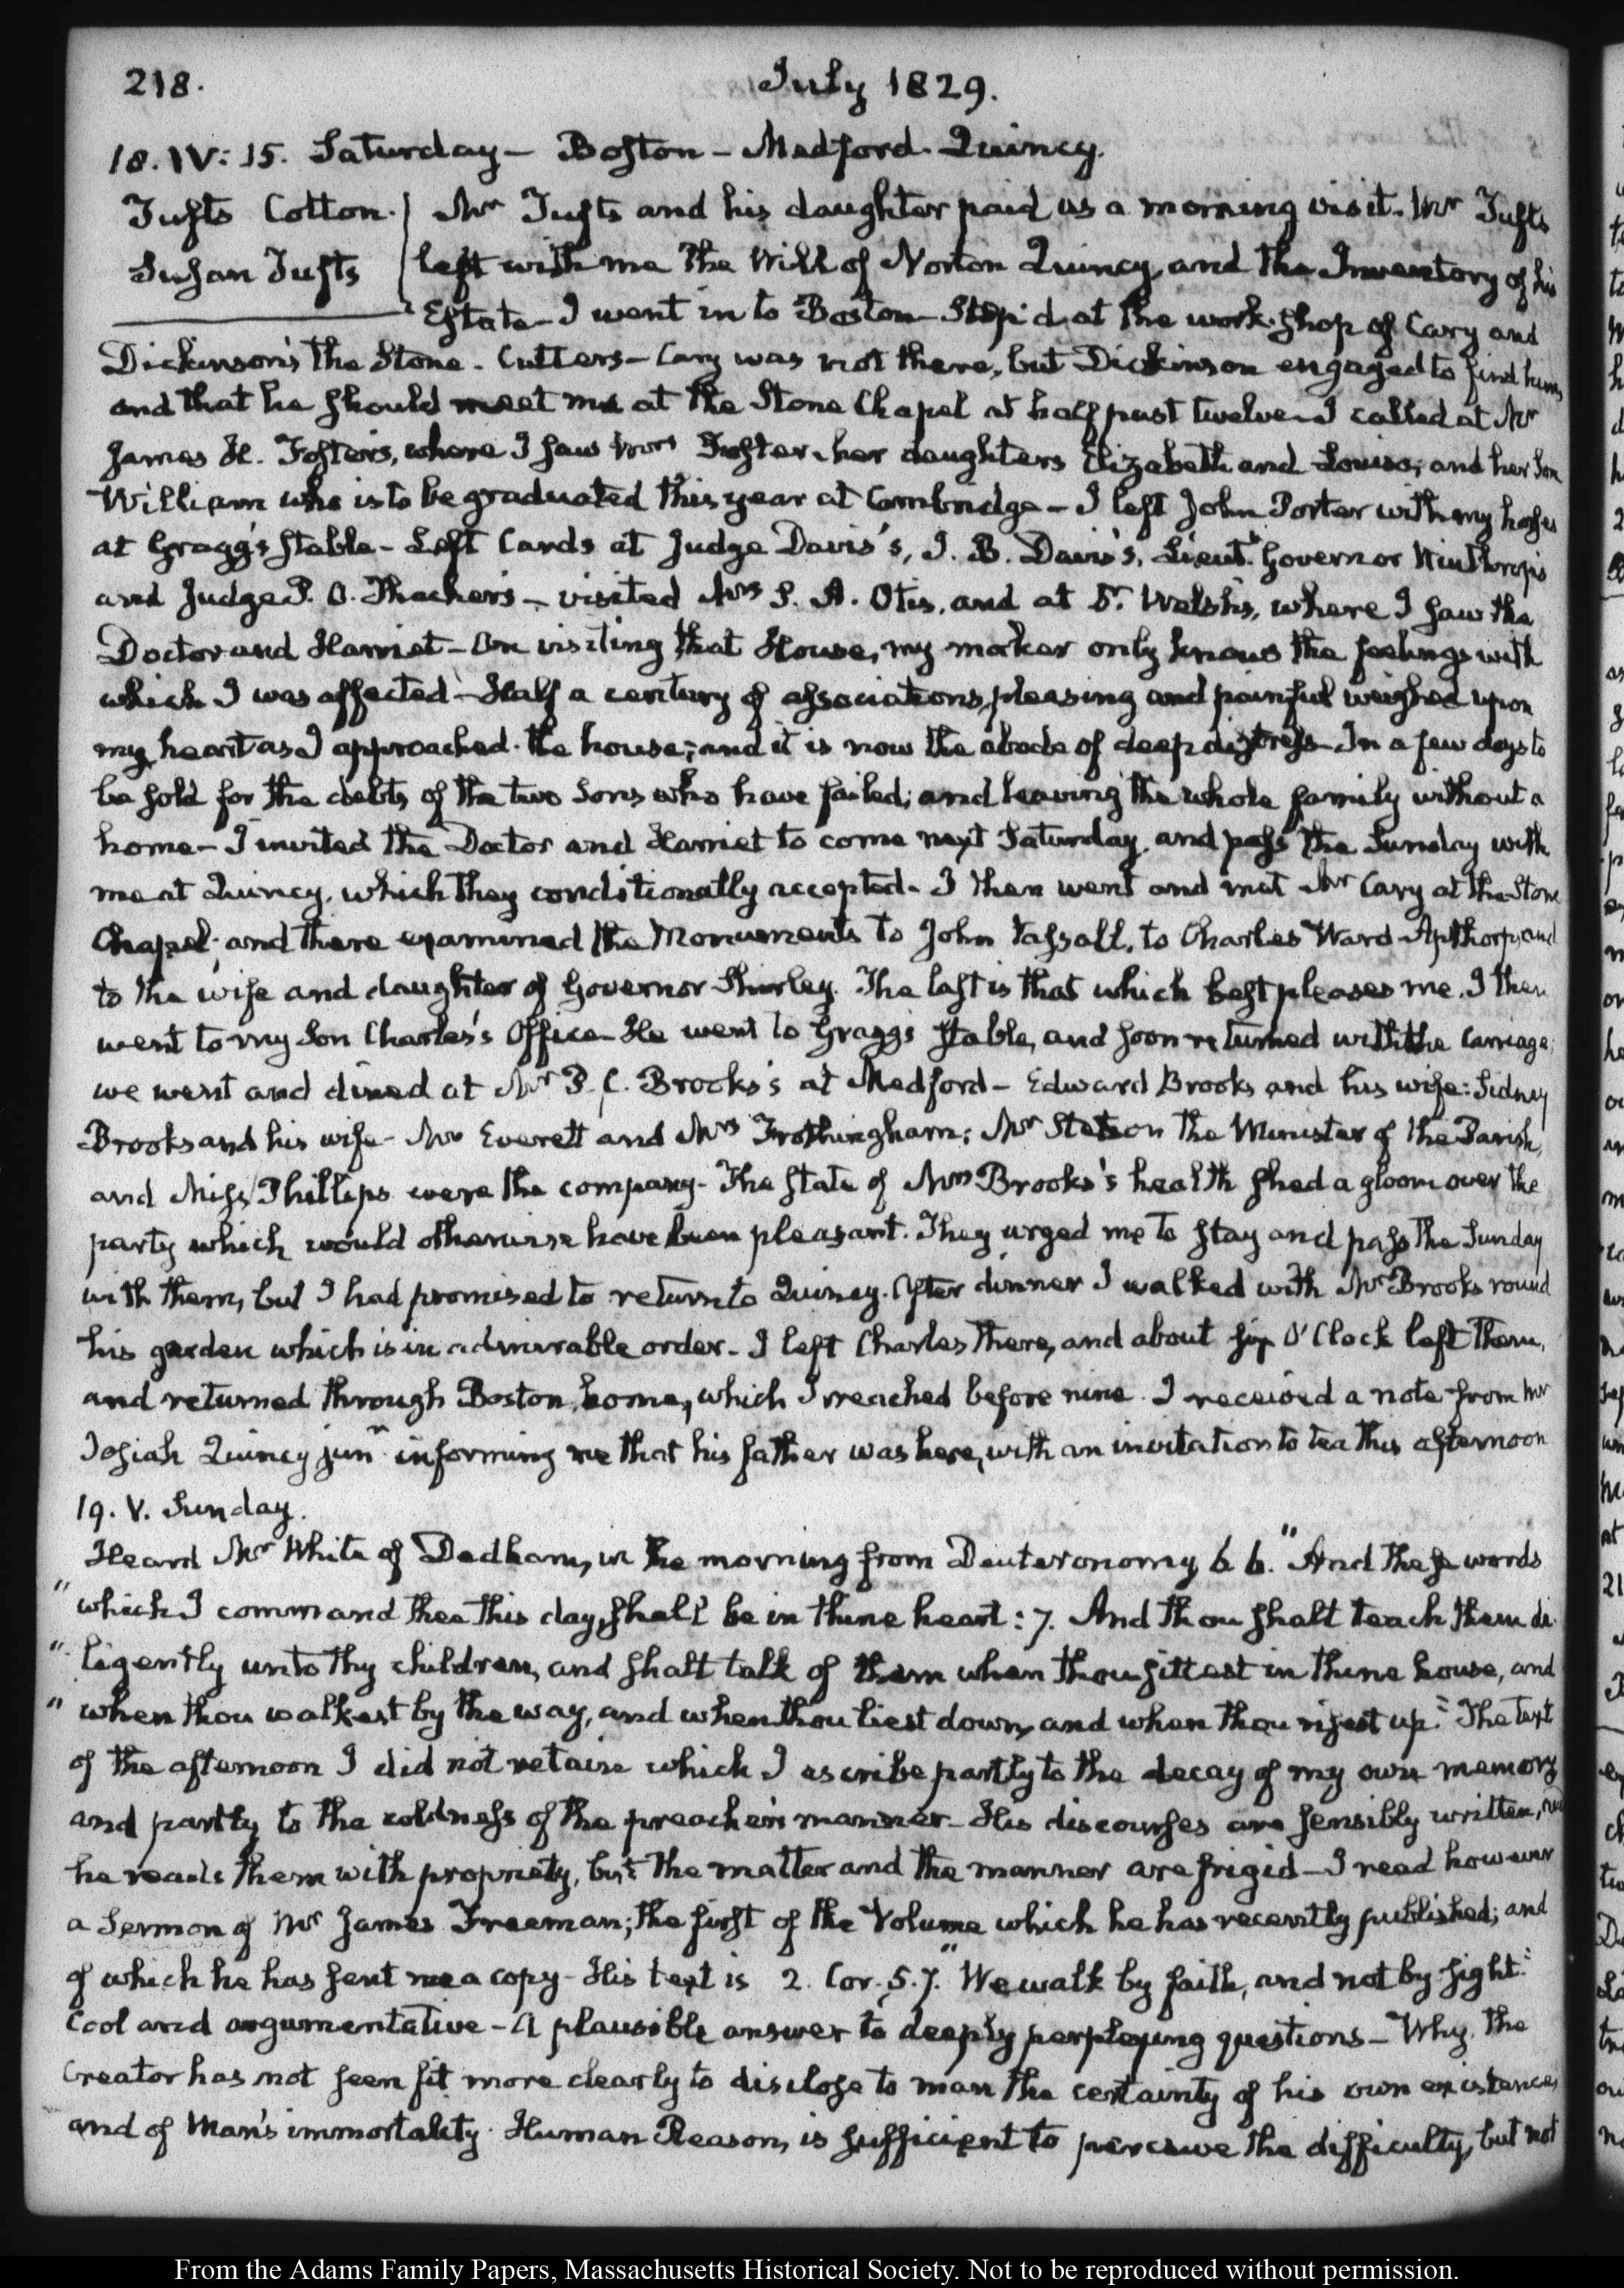 218.
July 1829.
18. IV: 15. Saturday — Boston — Medford. Quincy.
Tufts Cotton.
Susan Tufts
Mr Tufts and his daughter paid us a morning visit. Mr Tufts
left with me the Will of Norton Quincy, and the Inventory of his
Estate — I went in to Boston — Stop'd at the work-shop of Cary and
Dickinson's the Stone-Cutters — Cary was not there, but Dickinson engaged to find him,
and that he should meet me at the Stone Chapel at half past twelve — I called at Mr
James H. Foster's, where I saw Mrs Foster, her daughters Elizabeth and Louisa, and her Son
William who is to be graduated this year at Cambridge — I left John Porter with my horses
at Gragg's stable — Left Cards at Judge Davis's, I. B. Davis's, Lieutt Governor Winthrop's
and Judge P. O. Thacher's — visited Mrs S. A. Otis, and at Dr. Welsh's, where I saw the
Doctor and Harriet — On visiting that House, my maker only knows the feelings with
which I was affected — Half a century of associations, pleasing and painful weighed upon
my heart as I approached the house; and it is now the abode of deep distress — In a few days to
be sold for the debts of the two Sons who have failed; and leaving the whole family without a
home — I invited the Doctor and Harriet to come next Saturday, and pass the Sunday with
me at Quincy, which they conditionally accepted. I then went and met Mr Cary at the Stone
Chapel; and there examined the Monuments to John Vassall, to Charles Ward Apthorp, and
to the wife and daughter of Governor Shirley. The last is that which best pleases me. I then
went to my Son Charles's Office — He went to Gragg's stable, and soon returned with the Carriage;
we went and dined at Mr P. C. Brooks's at Medford — Edward Brooks and his wife: Sidney
Brooks and his wife — Mr Everett and Mrs Frothingham; Mr Stetson the Minister of the Parish,
and Miss Phillips were the company — The state of Mrs Brooks's health shed a gloom over the
party which would otherwise have been pleasant. They urged me to stay and pass the Sunday
with them, but I had promised to return to Quincy. After dinner I walked with Mr Brooks round
his garden which is in admirable order — I left Charles there, and about six O'Clock left them,
and returned through Boston home, which I reached before nine. I received a note from Mr
Josiah Quincy junr informing me that his father was here, with an invitation to tea this afternoon
19. V. Sunday.
Heard Mr White of Dedham, in the morning from Deuteronomy 6 6. "And these words
"which I command thee this day, shall be in thine heart: 7. And thou shalt teach them di-
"ligently unto thy children, and shalt talk of them when thou sittest in thine house, and
"when thou walkest by the way, and when thou liest down, and when thou risest up." The text
of the afternoon I did not retain which I ascribe partly to the decay of my own memory
and partly to the coldness of the preacher's manner — His discourses are sensibly written, and
he reads them with propriety, but the matter and the manner are frigid — I read however
a Sermon of Mr James Freeman; the first of the Volume which he has recently published; and
of which he has sent me a copy — His text is 2. Cor. 5. 7. "We walk by faith, and not by sight."
Cool and argumentative — A plausible answer to deeply perplexing questions — Why the
Creator has not seen fit more clearly to disclose to man the certainty of his own existence,
and of Man's immortality. Human Reason, is sufficient to perceive the difficulty, but not
From the Adams Family Papers, Massachusetts Historical Society. Not to be reproduced without permission.